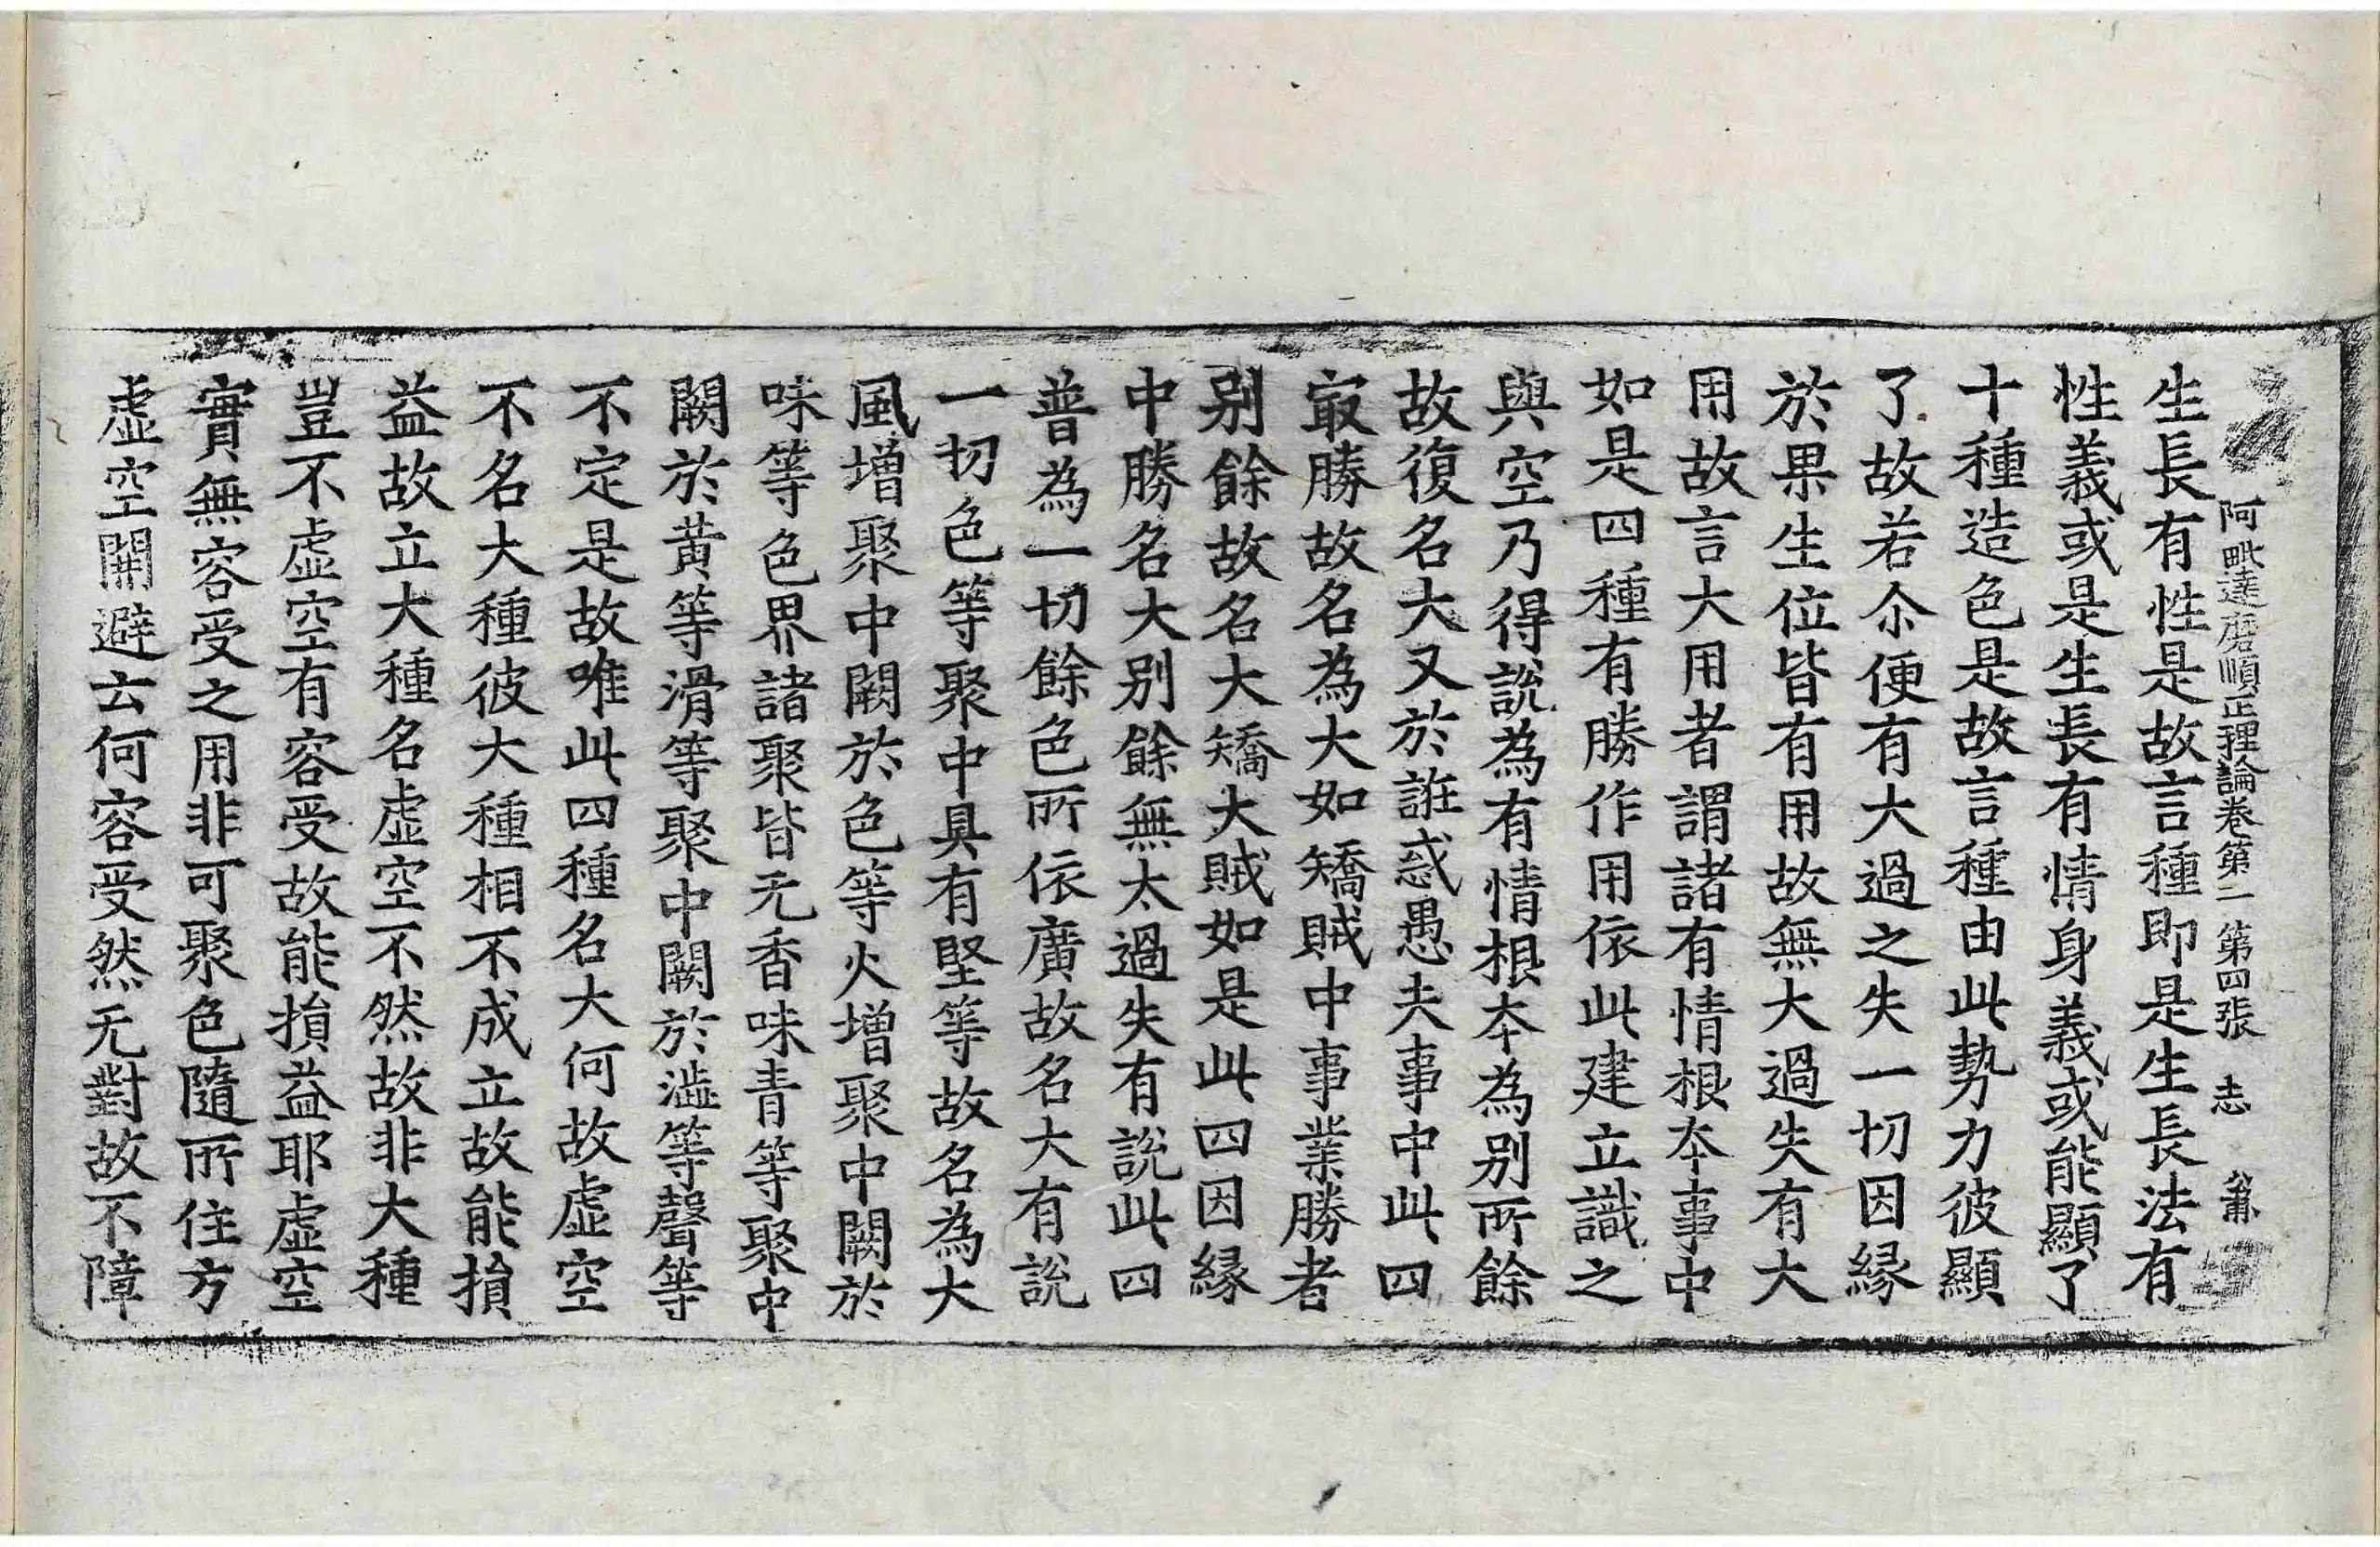 阿毗達磨順正理論卷第二 第四張 志
生長有性是故言種即是生長法有
性義或是生長有情身義或能顯了
十種造色是故言種由此勢力彼顯
了故若尒便有大過之失一切因緣
於果生位皆有用故無大過失有大
用故言大用者謂諸有情根本事中
如是四種有勝作用依此建立識之
與空乃得說為有情根本為別所餘
故復名大又於誑惑愚夫事中此四
㝡勝故名為大如矯賊中事業勝者
別餘故名大矯大賊如是此四因緣
中勝名大別餘無太過失有說此四
普為一切餘色所依廣故名大有說
一切色等聚中具有堅等故名為大
風增聚中闕於色等火增聚中闕於
味等色界諸聚皆无香味青等聚中
闕於黃等滑等聚中闕於澁等聲等
不定是故唯此四種名大何故虛空
不名大種彼大種相不成立故能損
益故立大種名虛空不然故非大種
豈不虛空有容受故能損益耶虛空
實無容受之用非可聚色隨所住方
虛空開避云何容受然无對故不障